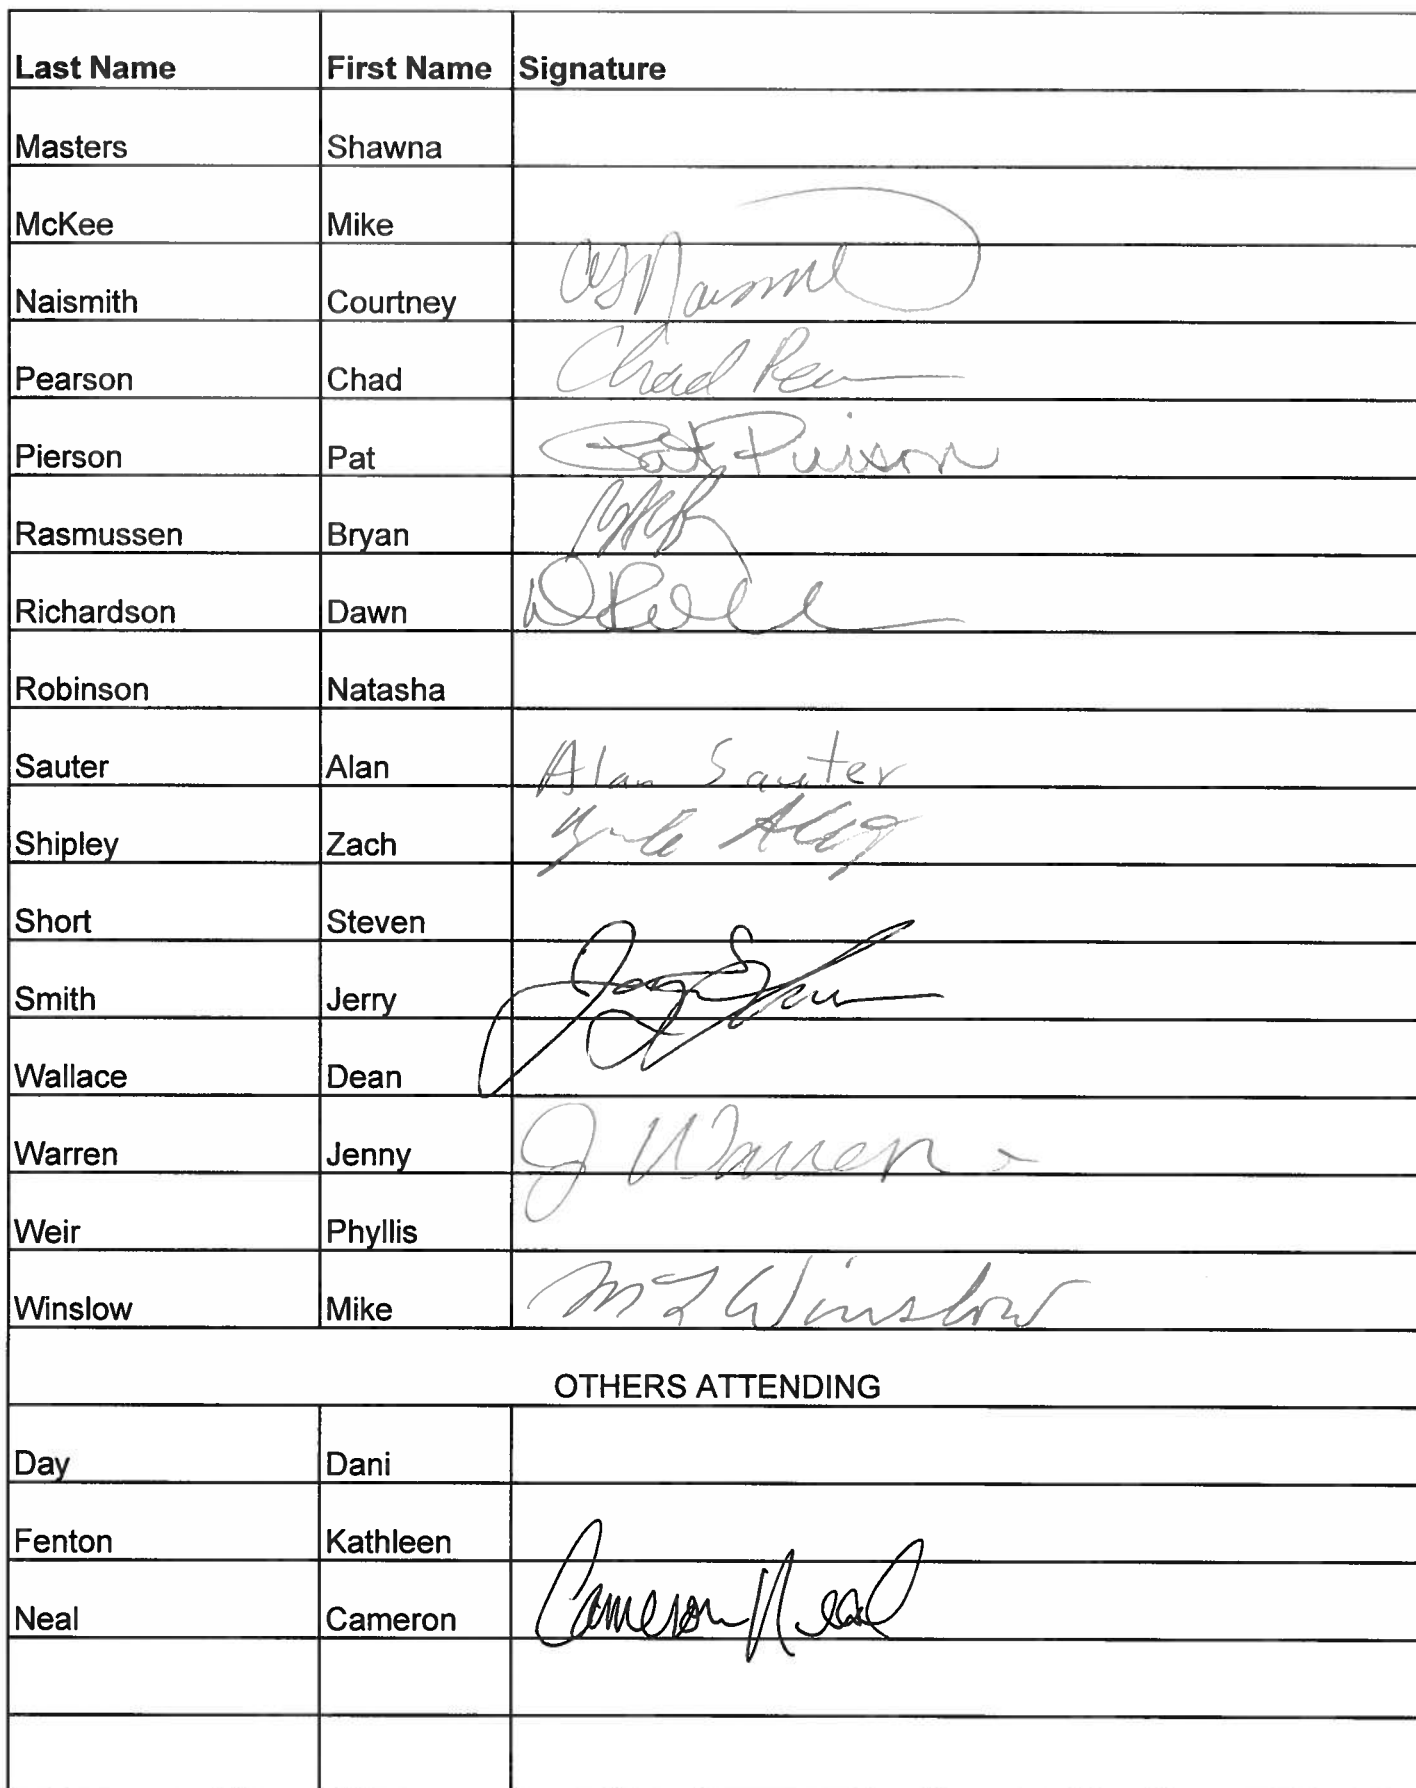 Last Name First Name Signature
Masters Shawna
McKee Mike
Naismith Courtney
Pearson Chad Chad
Pierson Pat Pat Pierson
Rasmussen Bryan
Richardson Dawn
Robinson Natasha
Sauter Alan Alan Sauter
Shipley Zach
Short Steven
Smith Jerry
Wallace Dean
Warren Jenny J Warren
Weir Phyllis
Winslow Mike M L Winslow
OTHERS ATTENDING
Day Dani
Fenton Kathleen
Neal Cameron Cameron Neal